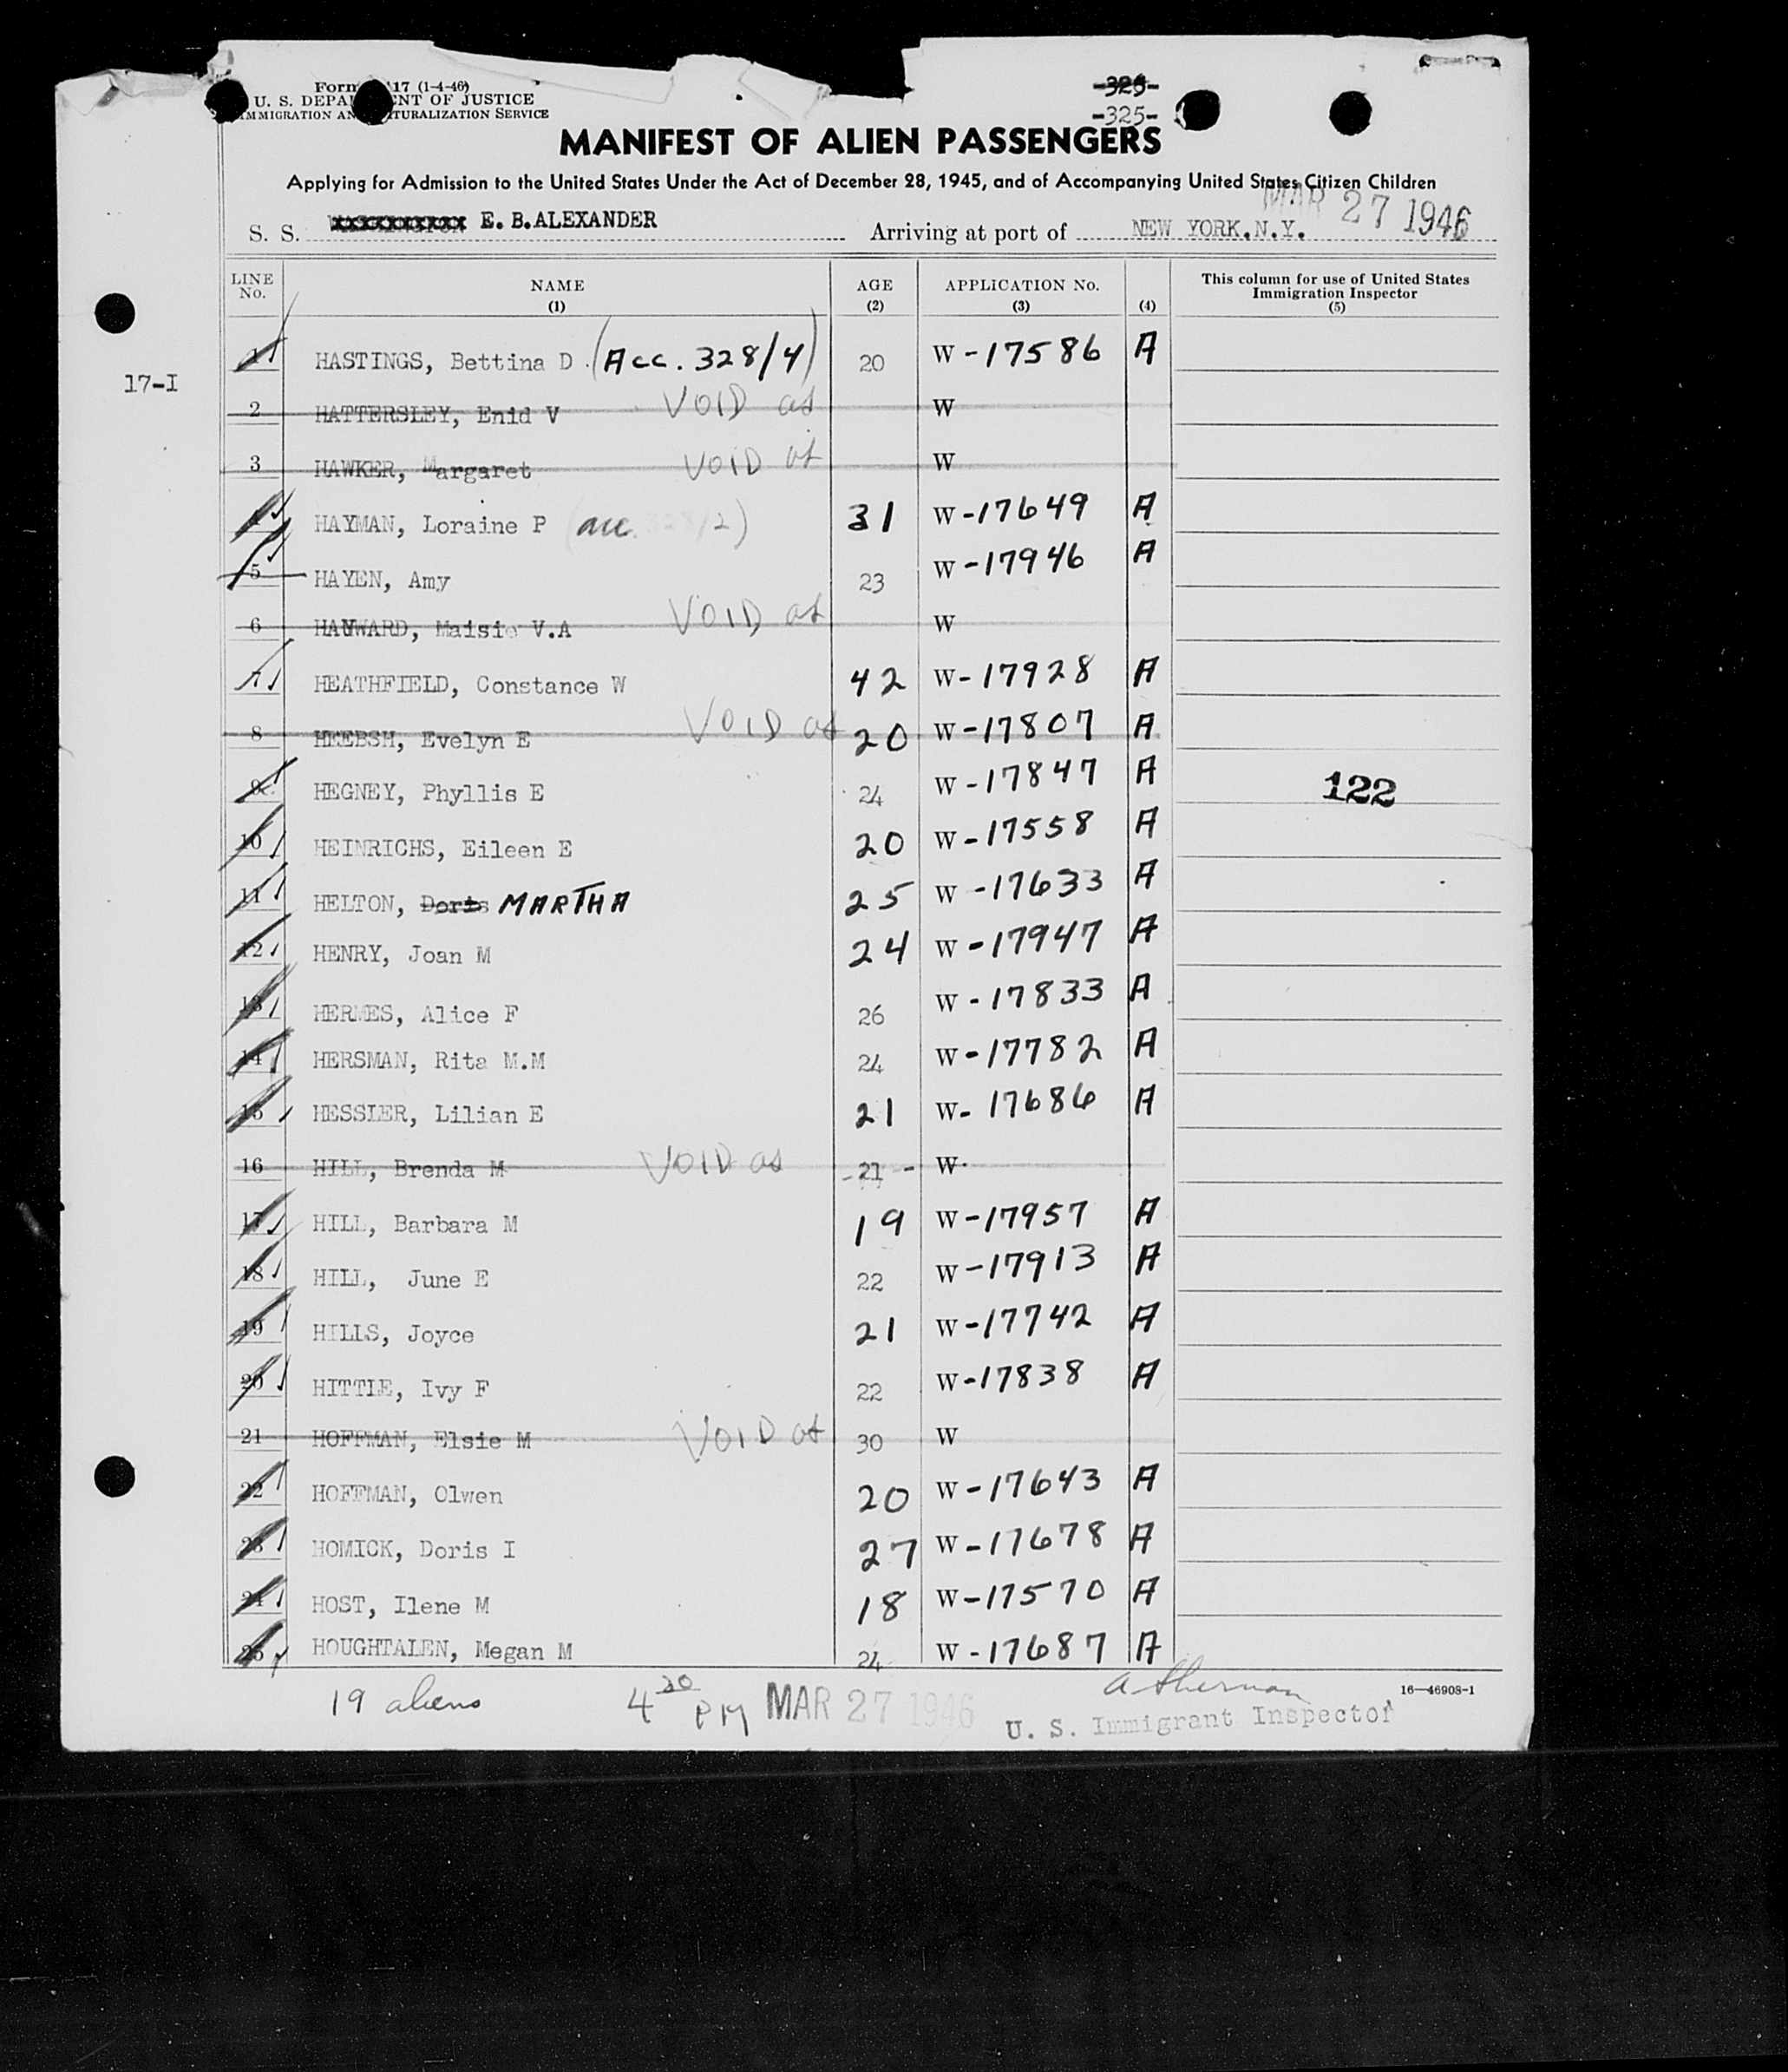 Form 17 (1-4-46)
U. S. DEPA ENT OF JUSTICE
IMMIGRATION AN TURALIZATION SERVICE
-325-
-325-
MANIFEST OF ALIEN PASSENGERS
Applying for Admission to the United States Under the Act of December 28, 1945, and of Accompanying United States Citizen Children
MAR 27 1946
S. S. E. B. ALEXANDER Arriving at port of NEW YORK.N.Y.
LINE No. NAME (1) AGE (2) APPLICATION No. (3) (4) This column for use of United States Immigration Inspector (5)
17-I
1 HASTINGS, Bettina D. (Acc. 328/4) 20 W-17586 A
2 HATTERSLEY, Enid V VOID as W
3 HAWKER, Margaret VOID as W
4 HAYMAN, Loraine P (acc. 328/2) 31 W-17649 A
5 HAYEN, Amy 23 W-17946 A
6 HAYWARD, Maisie V.A VOID as W
7 HEATHFIELD, Constance W 42 W-17928 A
8 HEEBSH, Evelyn E VOID as 20 W-17807 A
9 HEGNEY, Phyllis E 24 W-17847 A
122
10 HEINRICHS, Eileen E 20 W-17558 A
11 HELTON, Doris MARTHA 25 W-17633 A
12 HENRY, Joan M 24 W-17947 A
13 HERMES, Alice F 26 W-17833 A
14 HERSMAN, Rita M.M 24 W-17782 A
15 HESSLER, Lilian E 21 W-17686 A
16 HILL, Brenda M VOID as -21- W
17 HILL, Barbara M 19 W-17957 A
18 HILL, June E 22 W-17913 A
19 HILLS, Joyce 21 W-17742 A
20 HITTLE, Ivy F 22 W-17838 A
21 HOFFMAN, Elsie M VOID as 30 W
22 HOFFMAN, Olwen 20 W-17643 A
23 HOMICK, Doris I 27 W-17678 A
24 HOST, Ilene M 18 W-17570 A
25 HOUGHTALEN, Megan M 24 W-17687 A
19 aliens 4 30 PM MAR 27 1946 A Sherman 16—46908-1
U. S. Immigrant Inspector